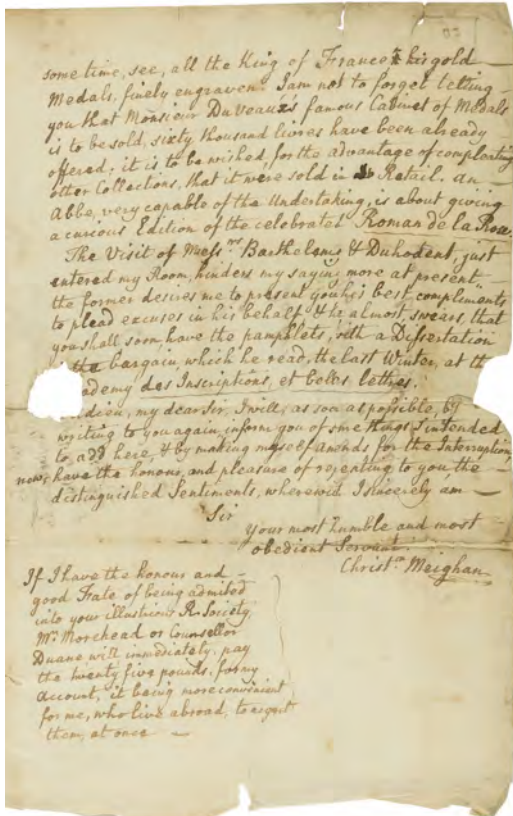 some time, see, all the King of France's his gold
Medals, finely engraven. I am not to forget telling
you that Monsieur DuVeaux's famous Cabinet of Medals
is to be sold, sixty thousand livres have been already
offered; it is to be wished, for the advantage of compleating
other Collections, that it were sold in Retail. an
Abbe, very capable of the Undertaking, is about giving
a curious Edition of the celebrated Roman de la Rose.
The Visit of Mess.rs Barthelemy & Duhodent, just
entered my Room, hinders my saying more at present
the former desires me to present you his best compliments
to plead excuses in his behalf & he almost swears, that
you shall soon, have the pamphlets, with a Dissertation
the bargain, which he read, the last Winter, at th
ademy des Inscriptions, et belles lettres.
adieu, my dear Sir, I will, as soon as possible, by
writing to you again, inform you of some things I intended
to add here, & by making myself amends for the Interruption,
now, have the honour, and pleasure of repeating to you the
distinguished Sentiments, wherewith I sincerely am
Sir
Your most humble and most
obedient Servant.
Christ.r Meighan
If I have the honour and
good Fate of being admited
into your illustrious R. Society,
Mr. Morehead or Counsellor
Duane will immediately pay
the twenty five pounds, for my
account, it being more convenient
for me, who live abroad, to
them, at once